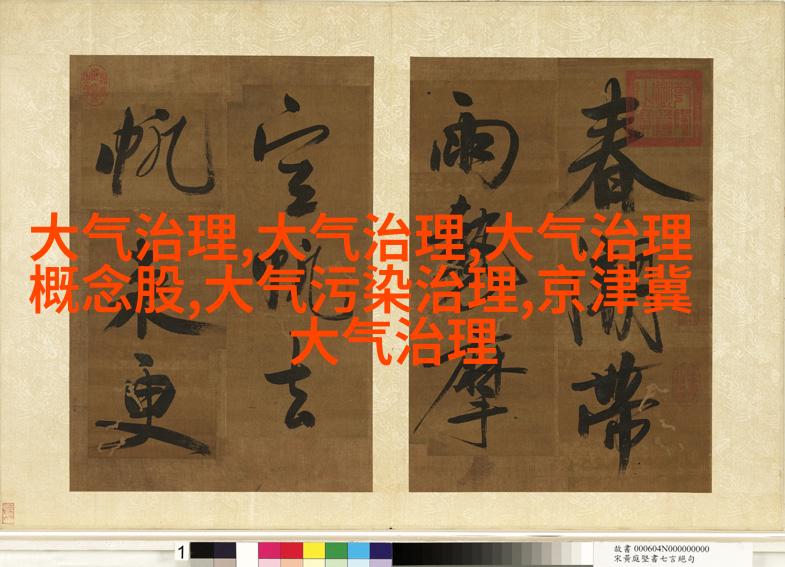 春帶
雨勢摩
空帆去
帆來更
大气治理,大气治理,大气治理
概念股,大气污染治理,京津冀
大气治理
1
故書 000604N000000000
宋黃庭堅書七言絕句